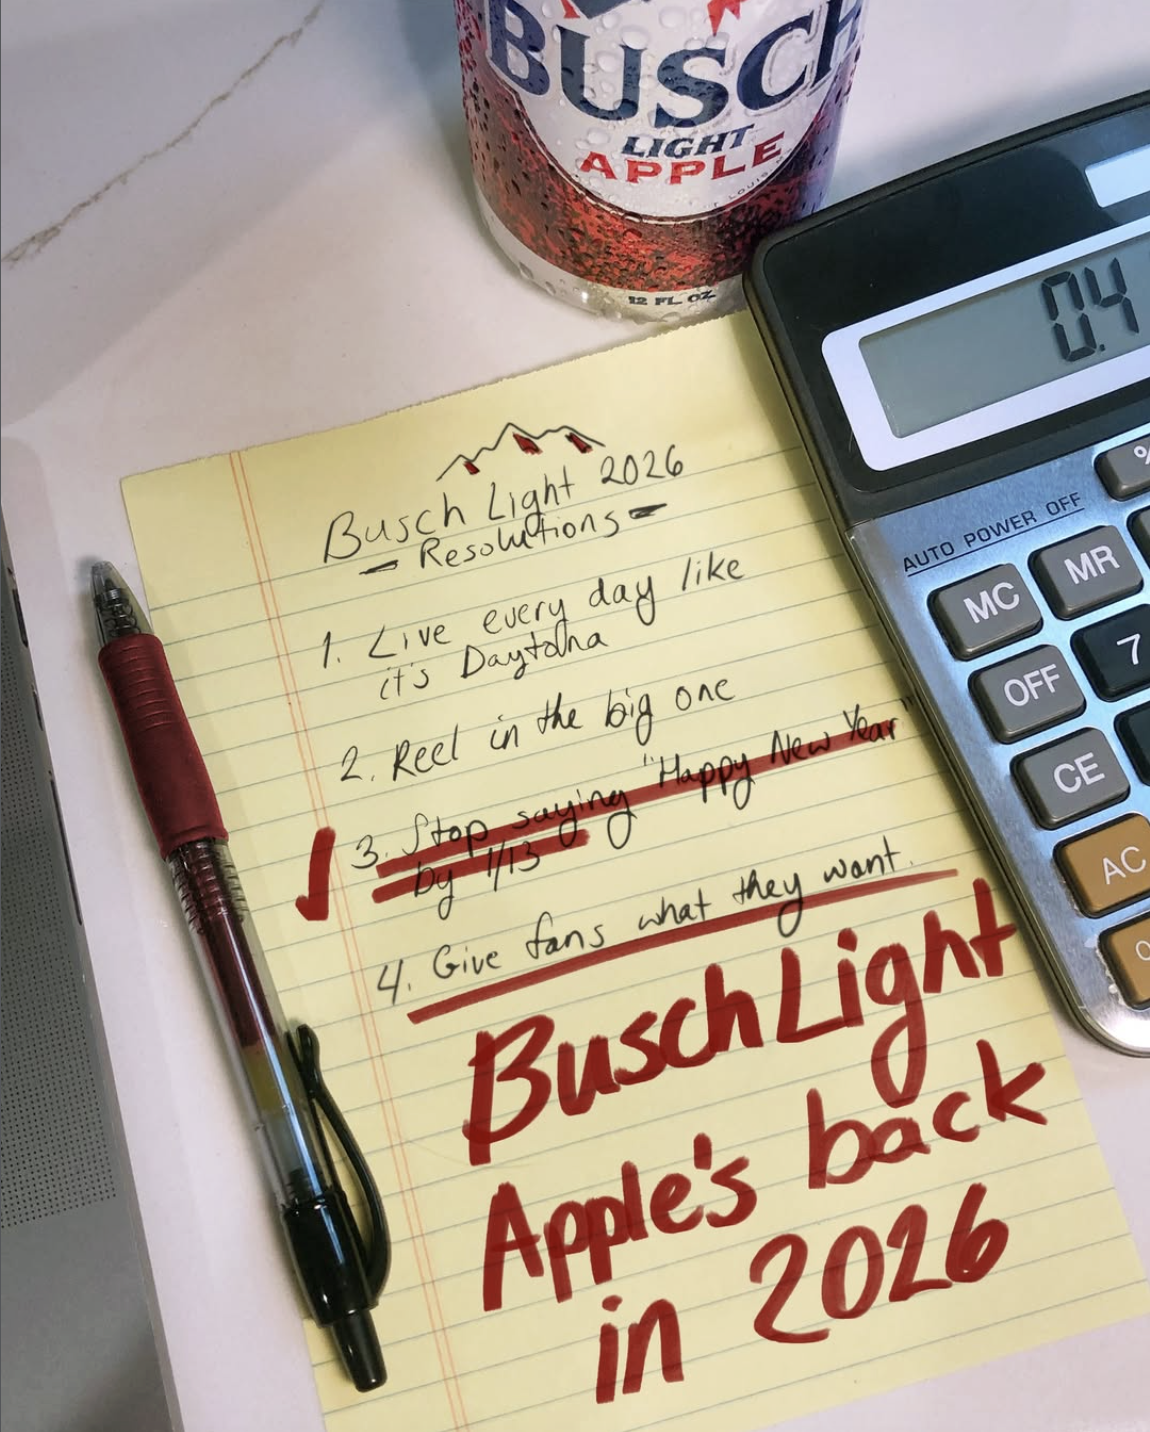 BUSCH
LIGHT
APPLE
12 FL. OZ.
0.4
%
AUTO POWER OFF
MC
MR
OFF
7
CE
AC
Busch Light 2026
- Resolutions -
1. Live every day like
it's Daytona
2. Reel in the big one
3. Stop saying "Happy New Year"
by 1/13
4. Give fans what they want.
Busch Light
Apple's back
in 2026